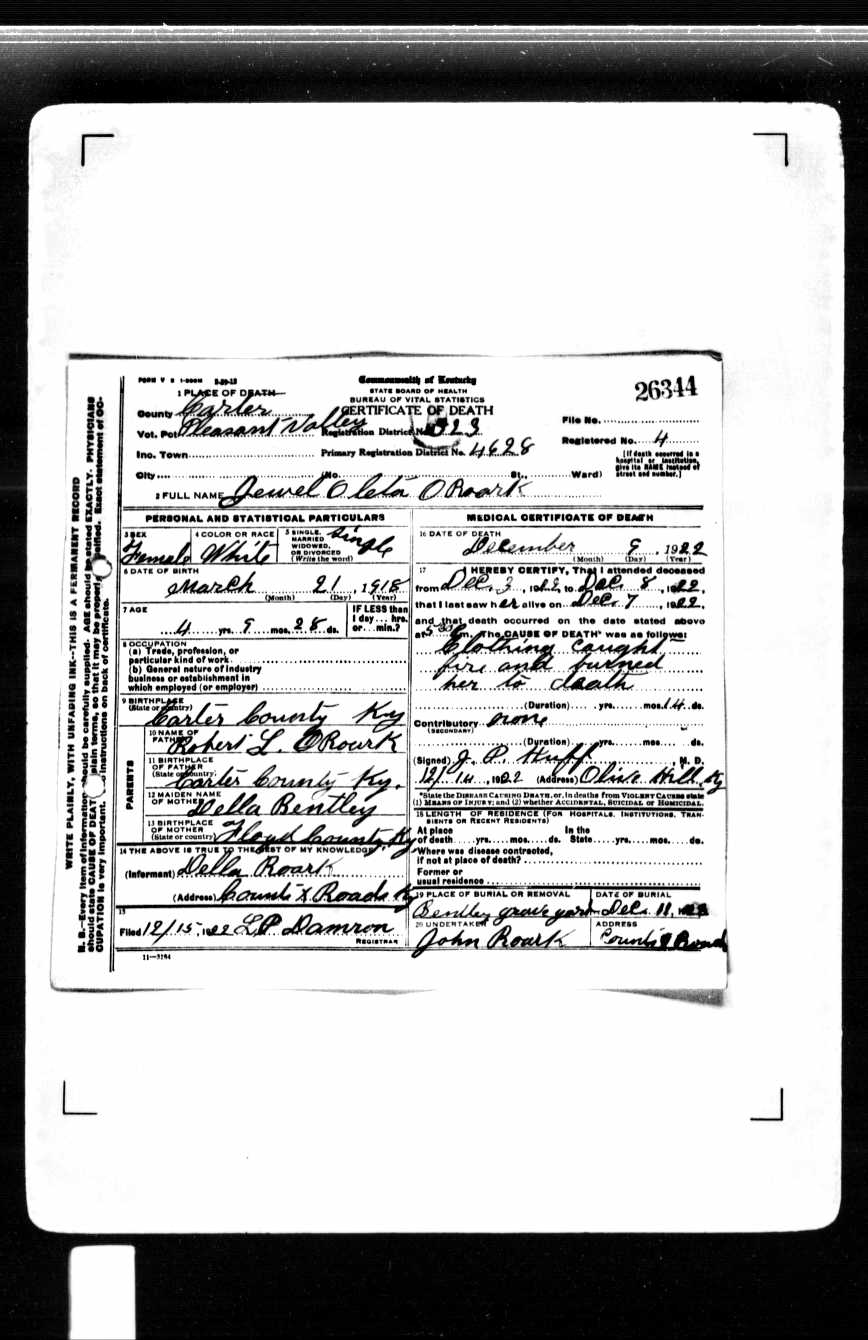 FORM V S 1-500M 8-20-15
Commonwealth of Kentucky
STATE BOARD OF HEALTH
BUREAU OF VITAL STATISTICS
CERTIFICATE OF DEATH
26344
1 PLACE OF DEATH
County Carter
Vot. Pct. Pleasant Valley
Registration District No. 123
File No.
Registered No. 4
Ino. Town
Primary Registration District No. 4628
[If death occurred in a hospital or institution, give its NAME instead of street and number.]
City (No. St., Ward)
2 FULL NAME Jewel Oleta O Roark
PERSONAL AND STATISTICAL PARTICULARS
3 SEX Female
4 COLOR OR RACE White
5 SINGLE, MARRIED WIDOWED, OR DIVORCED (Write the word) Single
6 DATE OF BIRTH
March 21, 1918
(Month) (Day) (Year)
7 AGE
4 yrs. 9 mos. 28 ds.
IF LESS than 1 day... hrs. or... min.?
8 OCCUPATION
(a) Trade, profession, or
particular kind of work
(b) General nature of industry
business or establishment in
which employed (or employer)
9 BIRTHPLACE
(State or country)
Carter County Ky
PARENTS
10 NAME OF FATHER Robert L. O Roark
11 BIRTHPLACE OF FATHER (State or country) Carter County Ky.
12 MAIDEN NAME OF MOTHER Della Bentley
13 BIRTHPLACE OF MOTHER (State or country) Floyd County Ky
14 THE ABOVE IS TRUE TO THE BEST OF MY KNOWLEDGE
(Informant) Della Roark
(Address) Counts X Roads Ky
15
Filed 12/15, 1922 L.P. Damron
REGISTRAR
11—3184
MEDICAL CERTIFICATE OF DEATH
16 DATE OF DEATH
December 9, 1922
(Month) (Day) (Year)
17 I HEREBY CERTIFY, That I attended deceased
from Dec. 3, 1922, to Dec. 8, 1922,
that I last saw her alive on Dec. 7, 1922,
and that death occurred on the date stated above
at m. The CAUSE OF DEATH* was as follows:
Clothing caught
fire and burned
her to death
(Duration) yrs. mos. 14 ds.
Contributory none
(SECONDARY)
(Duration) yrs. mos. ds.
(Signed) J. P. Huff, M. D.
12/14, 1922 (Address) Olive Hill, Ky
*State the DISEASE CAUSING DEATH, or, in deaths from VIOLENT CAUSES state
(1) MEANS OF INJURY; and (2) whether ACCIDENTAL, SUICIDAL or HOMICIDAL.
18 LENGTH OF RESIDENCE (FOR HOSPITALS, INSTITUTIONS, TRANSIENTS OR RECENT RESIDENTS)
At place of death yrs. mos. ds. In the State yrs. mos. ds.
Where was disease contracted,
if not at place of death?
Former or
usual residence
19 PLACE OF BURIAL OR REMOVAL
Bentley grave yard
DATE OF BURIAL
Dec. 11, 1922
20 UNDERTAKER
John Roark
ADDRESS
Counts X Roads
WRITE PLAINLY, WITH UNFADING INK--THIS IS A PERMANENT RECORD
N. B.—Every item of information should be carefully supplied. AGE should be stated EXACTLY. PHYSICIANS
should state CAUSE OF DEATH in plain terms, so that it may be properly classified. Exact statement of OC-
CUPATION is very important. instructions on back of certificate.